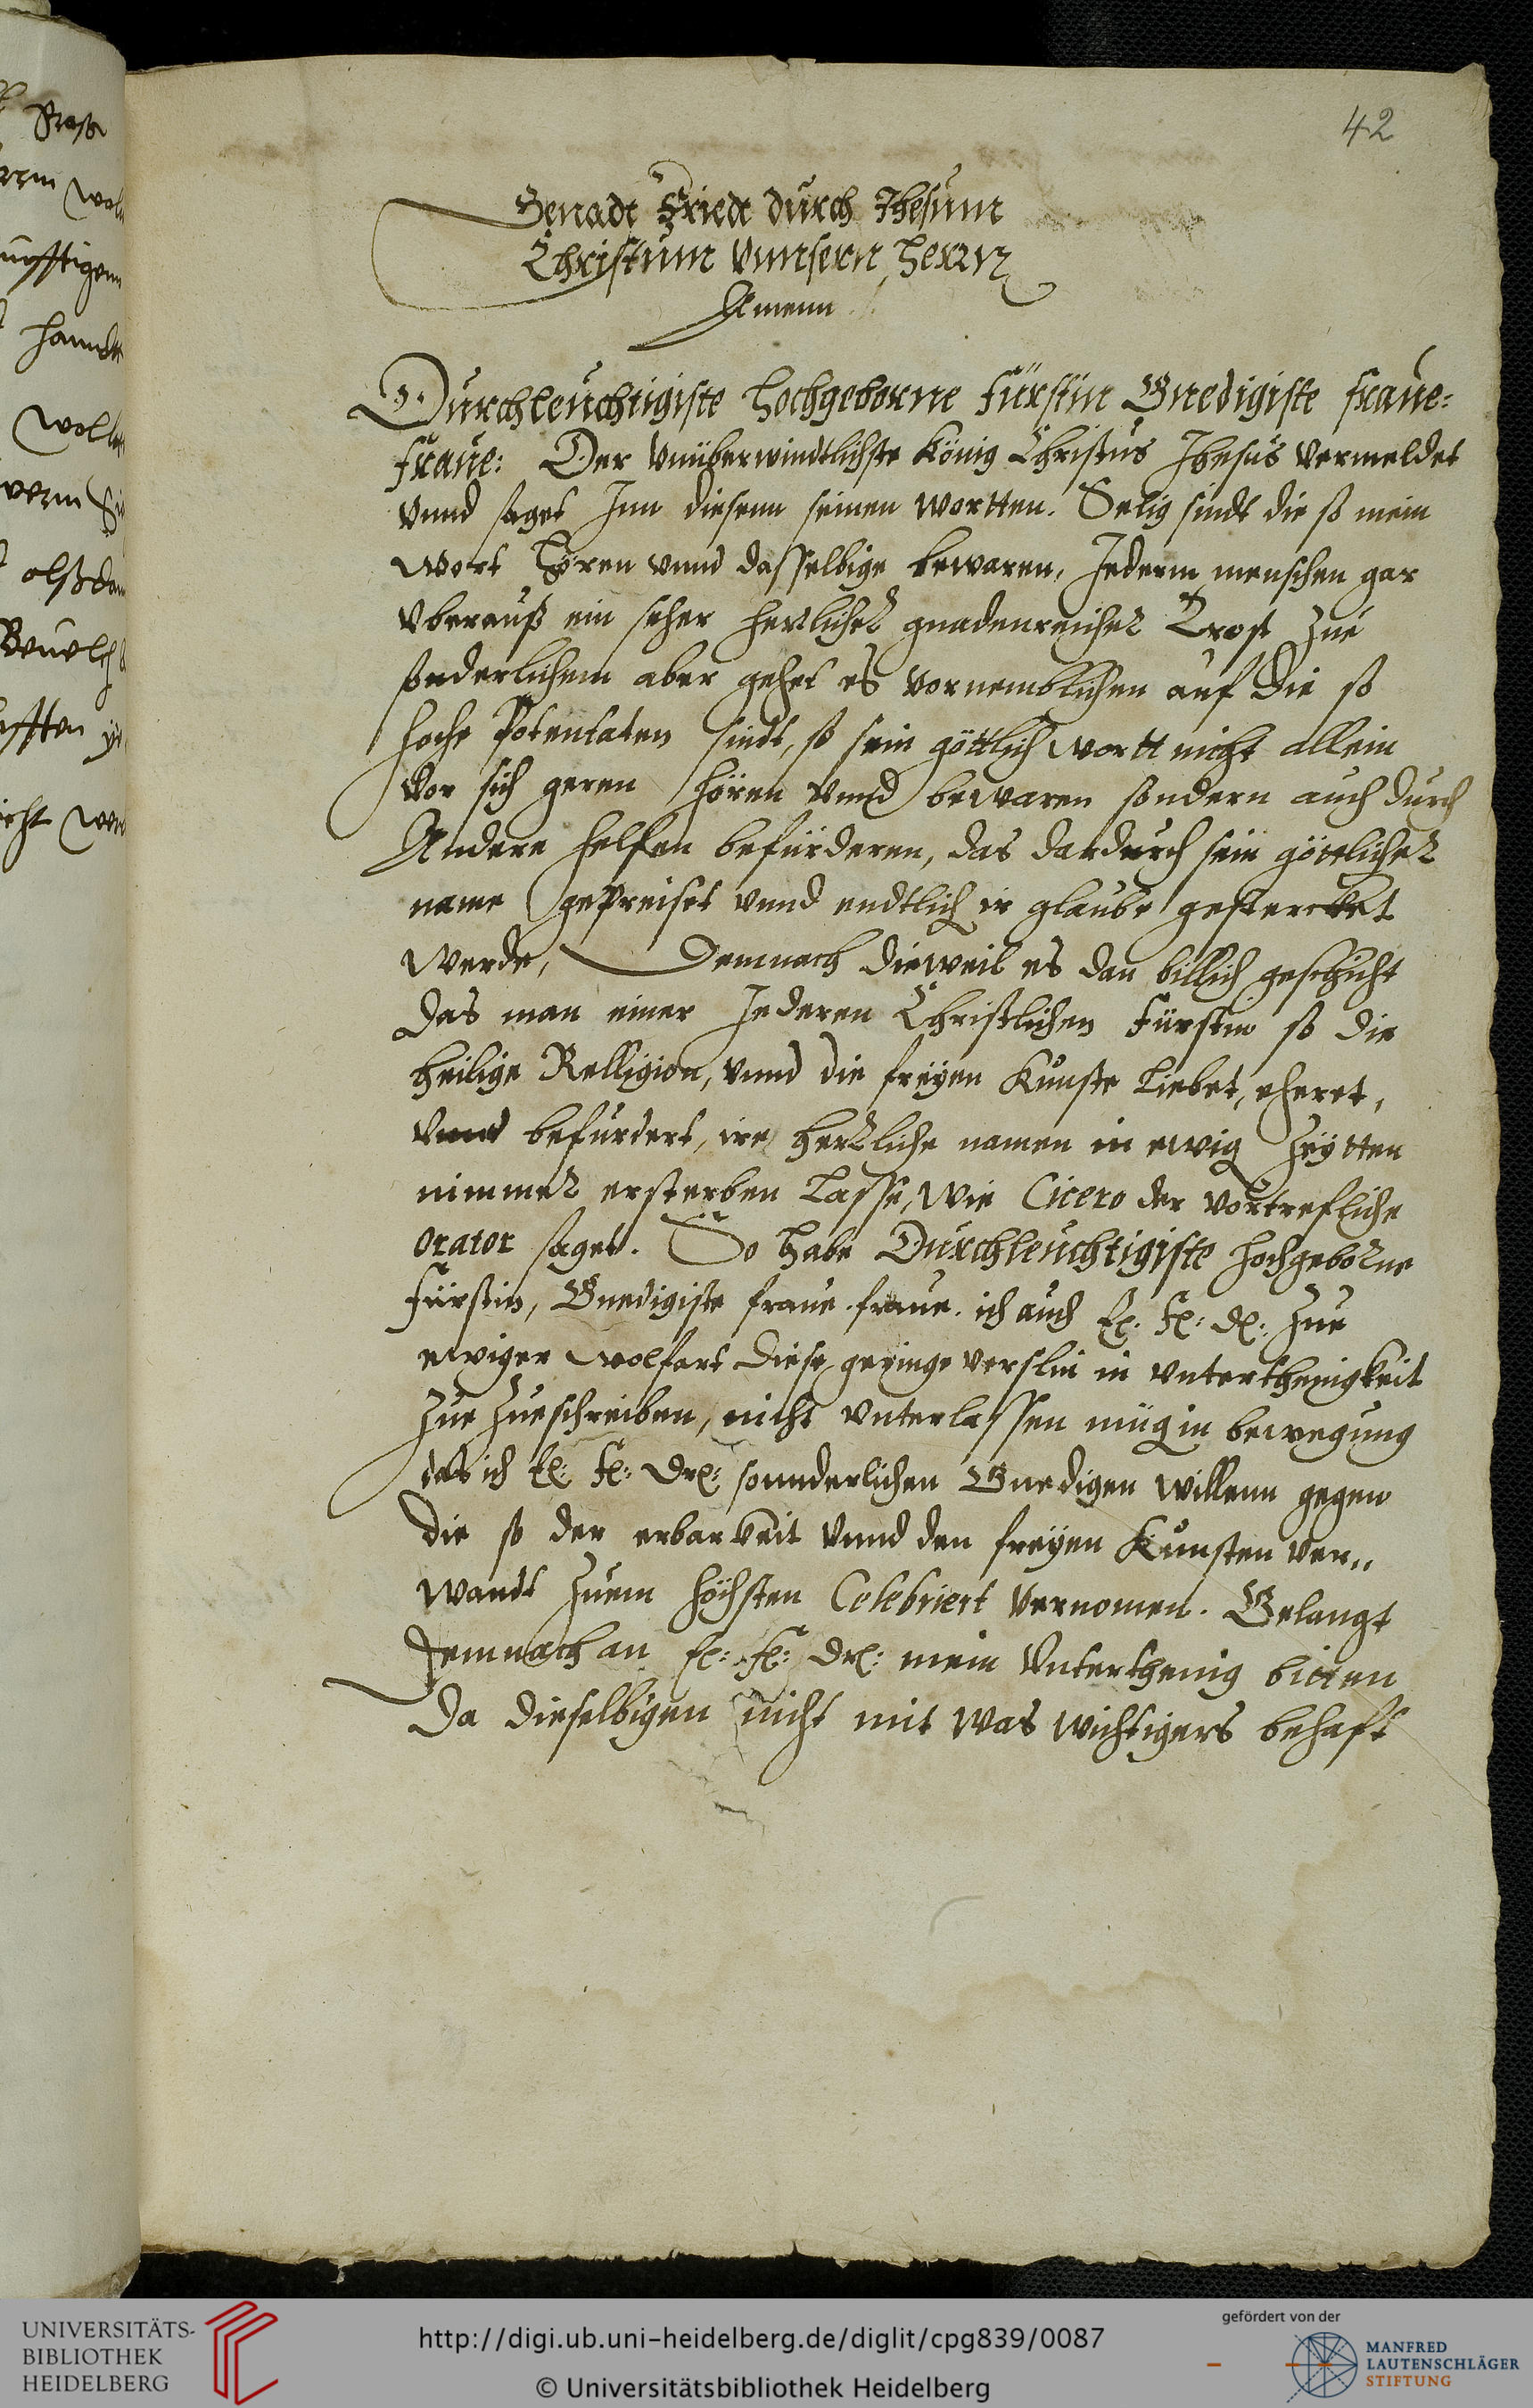 42
Genadt Friedt durch Ihesum
Christum Vnnsern herrn
Amenn
Durchleuchtigiste hochgeborne Fürstin Gnedigiste fraue:
fraue: Der vnüberwindtlichste König Christus Ihesus vermeldet
vnnd saget Inn diesenn seinen wortten. Selig sindt die so mein
wort hören vnnd dasselbige bewaren, Jederm menschen gar
vberauß ein seher herlicher gnadenreicher Trost zue
sonderlichem aber gehet es vornemblichen auf die so
hoche Potentaten sindt, so sein göttlich wortt nicht allein
vor sich geren hören vnnd bewaren sondern auch durch
Andere helffen befürderen, das dardurch sein göttlicher
name gepreiset vnnd endtlich ir glaube gestercket
werde, Demnach dieweil es dan billich geschicht
das man einer Jederen Christlichen Fürstin so die
heilige Relligion, vnnd die freyen Kunste Liebet, eheret,
vnnd befurdert, ire herrliche namen in ewig Zeytten
nimmer ersterben Lasse, wie Cicero der vortrefliche
orator saget. So habe Durchleuchtigiste hochgeborne
Fürstin, Gnedigiste fraue fraue. ich auch
zue
ewiger wolfart diese geringe verslin in vnterthenigkeit
zue zueschreiben, nicht vnterlassen in bewegung
das ich sonnderlichen Gnedigen willenn gegen
die so der erbarkeit vnnd den freyen Kunsten ver,,
wandt zuem höchsten Celebriert vernomen. Gelangt
demnach an mein vnterthenig bitten
Da dieselbigen nicht mit was wichtigers behaft
Beuelch
wollen
UNIVERSITÄTS-
BIBLIOTHEK
HEIDELBERG
http://digi.ub.uni-heidelberg.de/diglit/cpg839/0087
© Universitätsbibliothek Heidelberg
gefördert von der
MANFRED
LAUTENSCHLÄGER
STIFTUNG